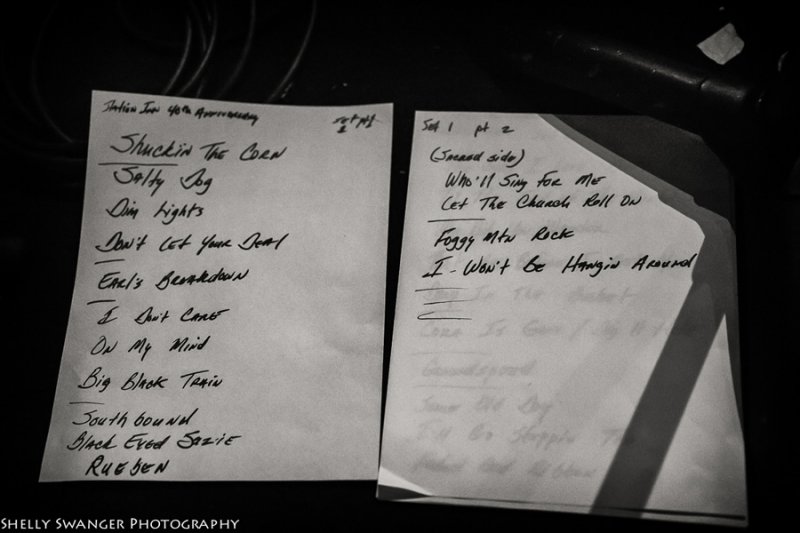 Station Inn 40th Anniversary
set pt 1
1
Shuckin The Corn
Salty Dog
Dim Lights
Don't Let Your Deal
Earl's Breakdown
I Don't Care
On My Mind
Big Black Train
Southbound
Black Eyed Suzie
Rueben
Set 1 pt 2
(Sacred side)
Who'll Sing For Me
Let The Church Roll On
Foggy Mtn Rock
I Won't Be Hangin Around
In The
Groundspeed
Some Old Day
SHELLY SWANGER PHOTOGRAPHY